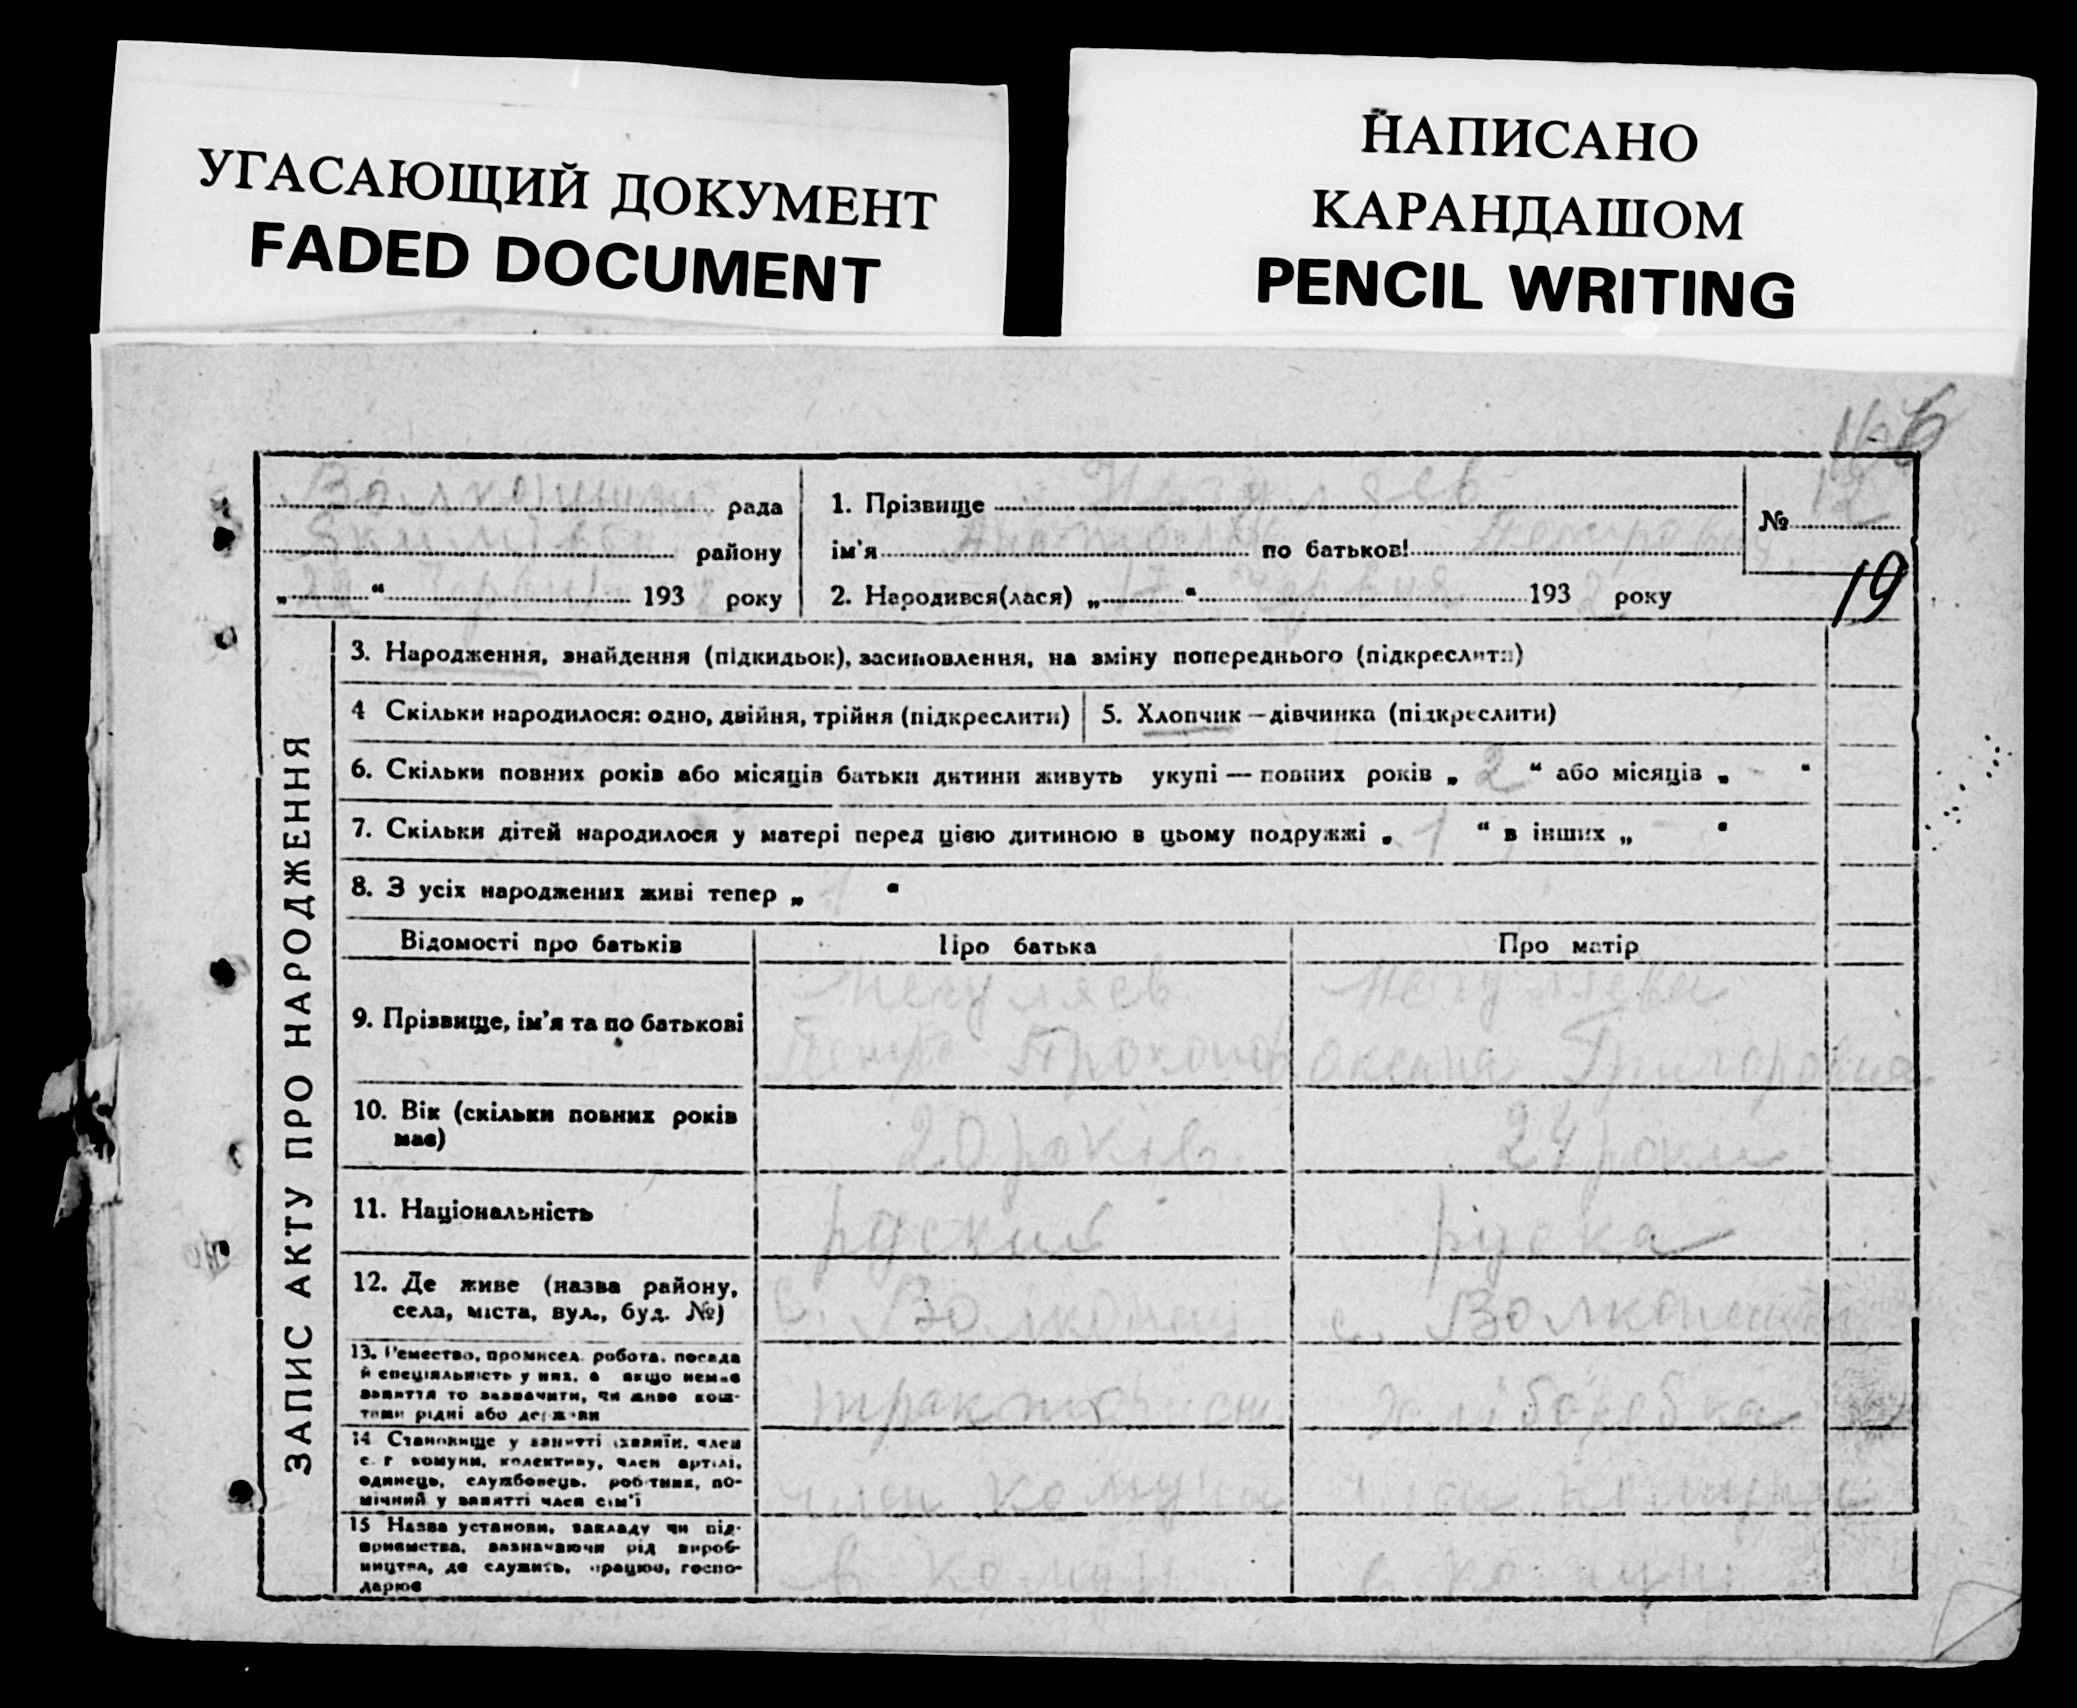 УГАСАЮЩИЙ ДОКУМЕНТ
FADED DOCUMENT
НАПИСАНО
КАРАНДАШОМ
PENCIL WRITING
рада
району
„ “ 193 року
1. Прізвище
ім’я Анатолій по батькові Петрович
2. Народився(лася) „ 17 “ червня 193 2 року
№ 12
19
ЗАПИС АКТУ ПРО НАРОДЖЕННЯ
3. Народження, знайдення (підкидьок), засиновлення, на зміну попереднього (підкреслити)
4 Скільки народилося: одно, двійня, трійня (підкреслити)
5. Хлопчик — дівчинка (підкреслити)
6. Скільки повних років або місяців батьки дитини живуть укупі — повних років „ 2 “ або місяців „ - “
7. Скільки дітей народилося у матері перед цією дитиною в цьому подружжі „ 1 “ в інших „ “
8. З усіх народжених живі тепер „ 1 “
Відомості про батьків Про батька Про матір
9. Прізвище, ім’я та по батькові
Петро Прокопов Оксана Григоровна
10. Вік (скільки повних років має)
20 років 24 роки
11. Національність руский руска
12. Де живе (назва району,
села, міста, вул., буд. №)
с. с.
13. Ремество, промисел, робота, посада
й спеціяльність у них, а якщо немає
заняття то зазначити, чи живе кош-
тами рідні або держави
тракторист хліборобка
14 Становище у занятті (хазяїн, член
с. г комуни, колективу, член артілі,
одинець, службовець, робітник, по-
мічний у занятті член сім’ї
член комуни член комуни
15 Назва установи, закладу чи під-
приємства, зазначаючи рід вироб-
ництва, де служить, працює, госпо-
дарює
в комуні в комуні